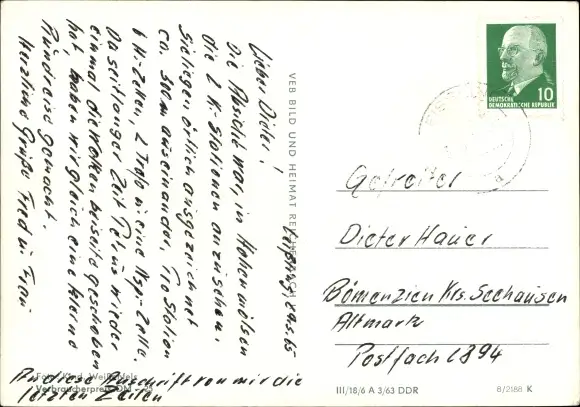 Leipzig, 29.5.65
Lieber Dieter!
Die Absicht war, in Hohenmölsen
die 2 Ki-Stationen anzusehen.
Sie liegen örtlich ausgezeichnet
ca. 300m auseinander. Pro Station
6 Ki-Zellen, 2 Trafo u. eine Wsp.-Zelle.
Da seit langer Zeit Petrus wieder
einmal die Wolken beiseite geschoben
hat, haben wir gleich eine kleine
Rundreise gemacht.
Herzliche Grüße Fred u. Frau
An diese Anschrift von mir die
letzten Zeilen
VEB BILD UND HEIMAT
Foto: Weißenfels
Verbraucherpreis DM
DEUTSCHE
DEMOKRATISCHE REPUBLIK
10
Gefreiter
Dieter Hauer
Bömenzien Krs. Seehausen
Altmark
Postfach 2894
III/18/6 A 3/63 DDR
8/2188 K